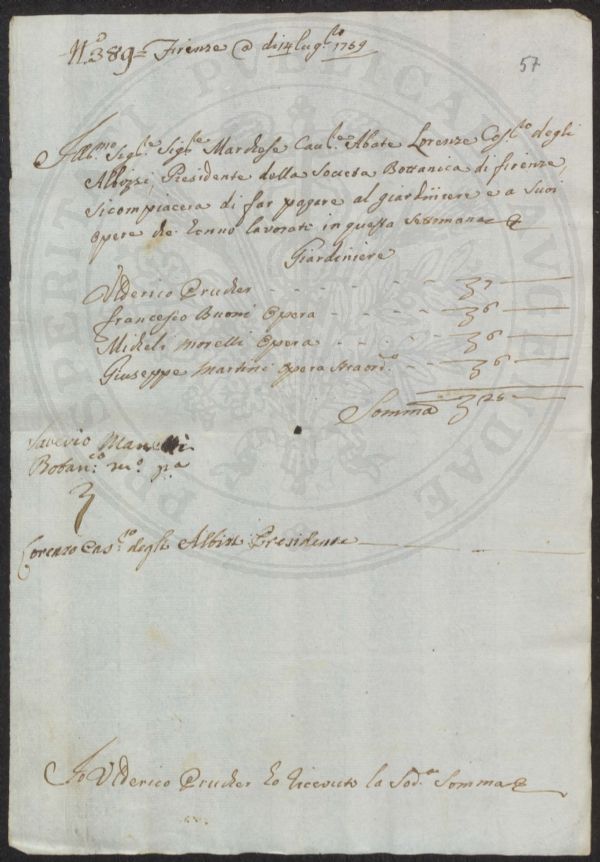 N.o 389= Firenze @ di 14 Lug.lo 1759
57
Ill.mo Sig.re Sig.re Marchese Cau.re Abate Lorenzo Cas.lo degli
Albizzi, Presidente della Società Bottanica di firenze,
si compiacerà di far pagare al giardiniere e a suoi
opere che ònno lavorato in questa Settimana
Giardiniere
Vlderico Prucher - - - - - - - 7
francesco Buoni Opera - - - - - 6
Micheli Morelli Opera - - - - 6
Giuseppe Martini Opera straord.o - - 6
Somma 25
Saverio Manetti
Botan.co m.o p.a
Lorenzo Cas.ro degli Albizi Presidente
Io Vlderico Prucher ho riceuuto la Sod.a Somma
PROSPERITATI PVBLICAE AVGENDAE